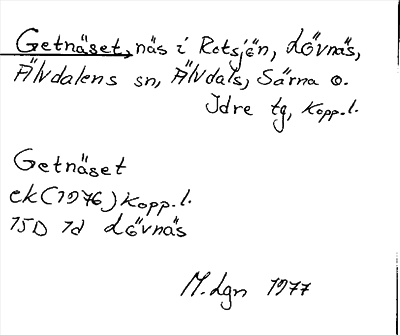 Getnäset, näs i Rotsjön, Lövnäs,
Älvdalens sn, Älvdals, Särna o.
Idre tg, Kopp.l.
Getnäset
ek (1976) Kopp.l.
15D 1d Lövnäs
M.Lgn 1977